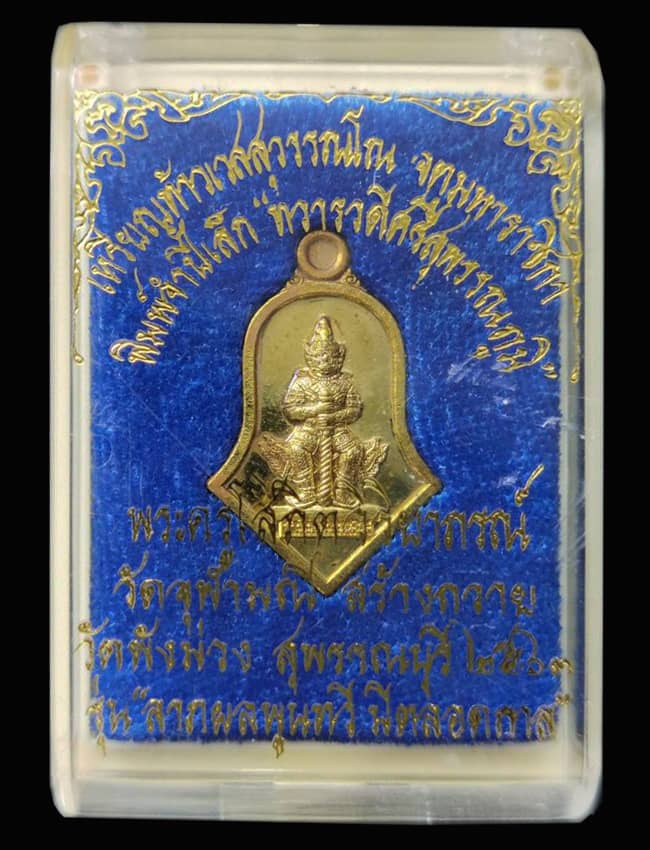 เหรียญท้าวเวสสุวรรณโณ จตุมหาราชิกา
พิมพ์จำปีเล็ก "ทวาราวดีศรีสุพรรณภูมิ"
พระครูโสภิต
วัดจุฬามณี สร้างถวาย
วัดพังม่วง สุพรรณบุรี ๒๕๖๓
รุ่น "ลาภผลพูนทวี มีตลอดกาล"